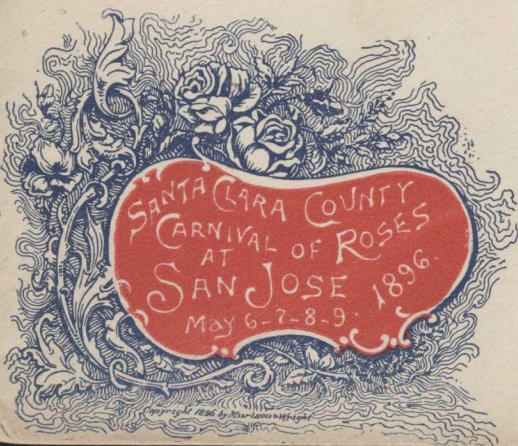 SANTA CLARA COUNTY
CARNIVAL OF ROSES
AT
SAN JOSE 1896.
May 6-7-8-9.
Copyright 1896 by Murlson & Wright